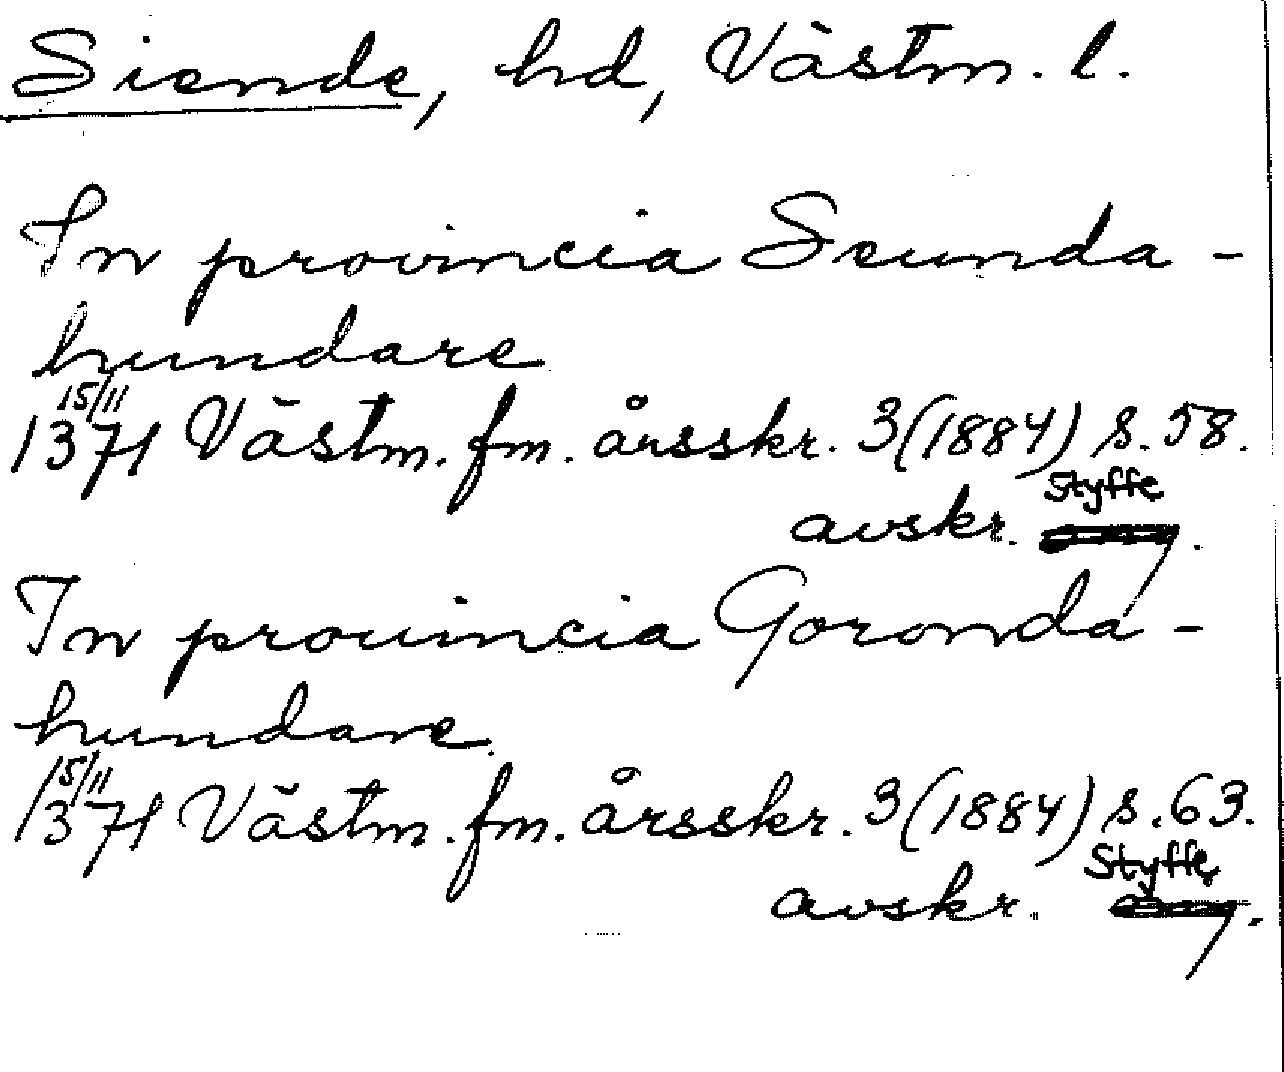 Siende, hd, Västm. l.
In provincia Seunda-
hundare
15/11
1371 Västm. fm. årsskr. 3 (1884) s. 58.
Styffe
avskr.
In prouincia Goronda-
hundare
15/11
1371 Västm. fm. årsskr. 3 (1884) s. 63.
Styffe
avskr.